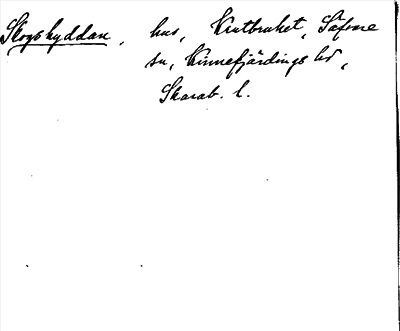 Skogshyddan, hus, Krutbruket, Säfvare
sn, Kinnefjärdings hd,
Skarab. l.